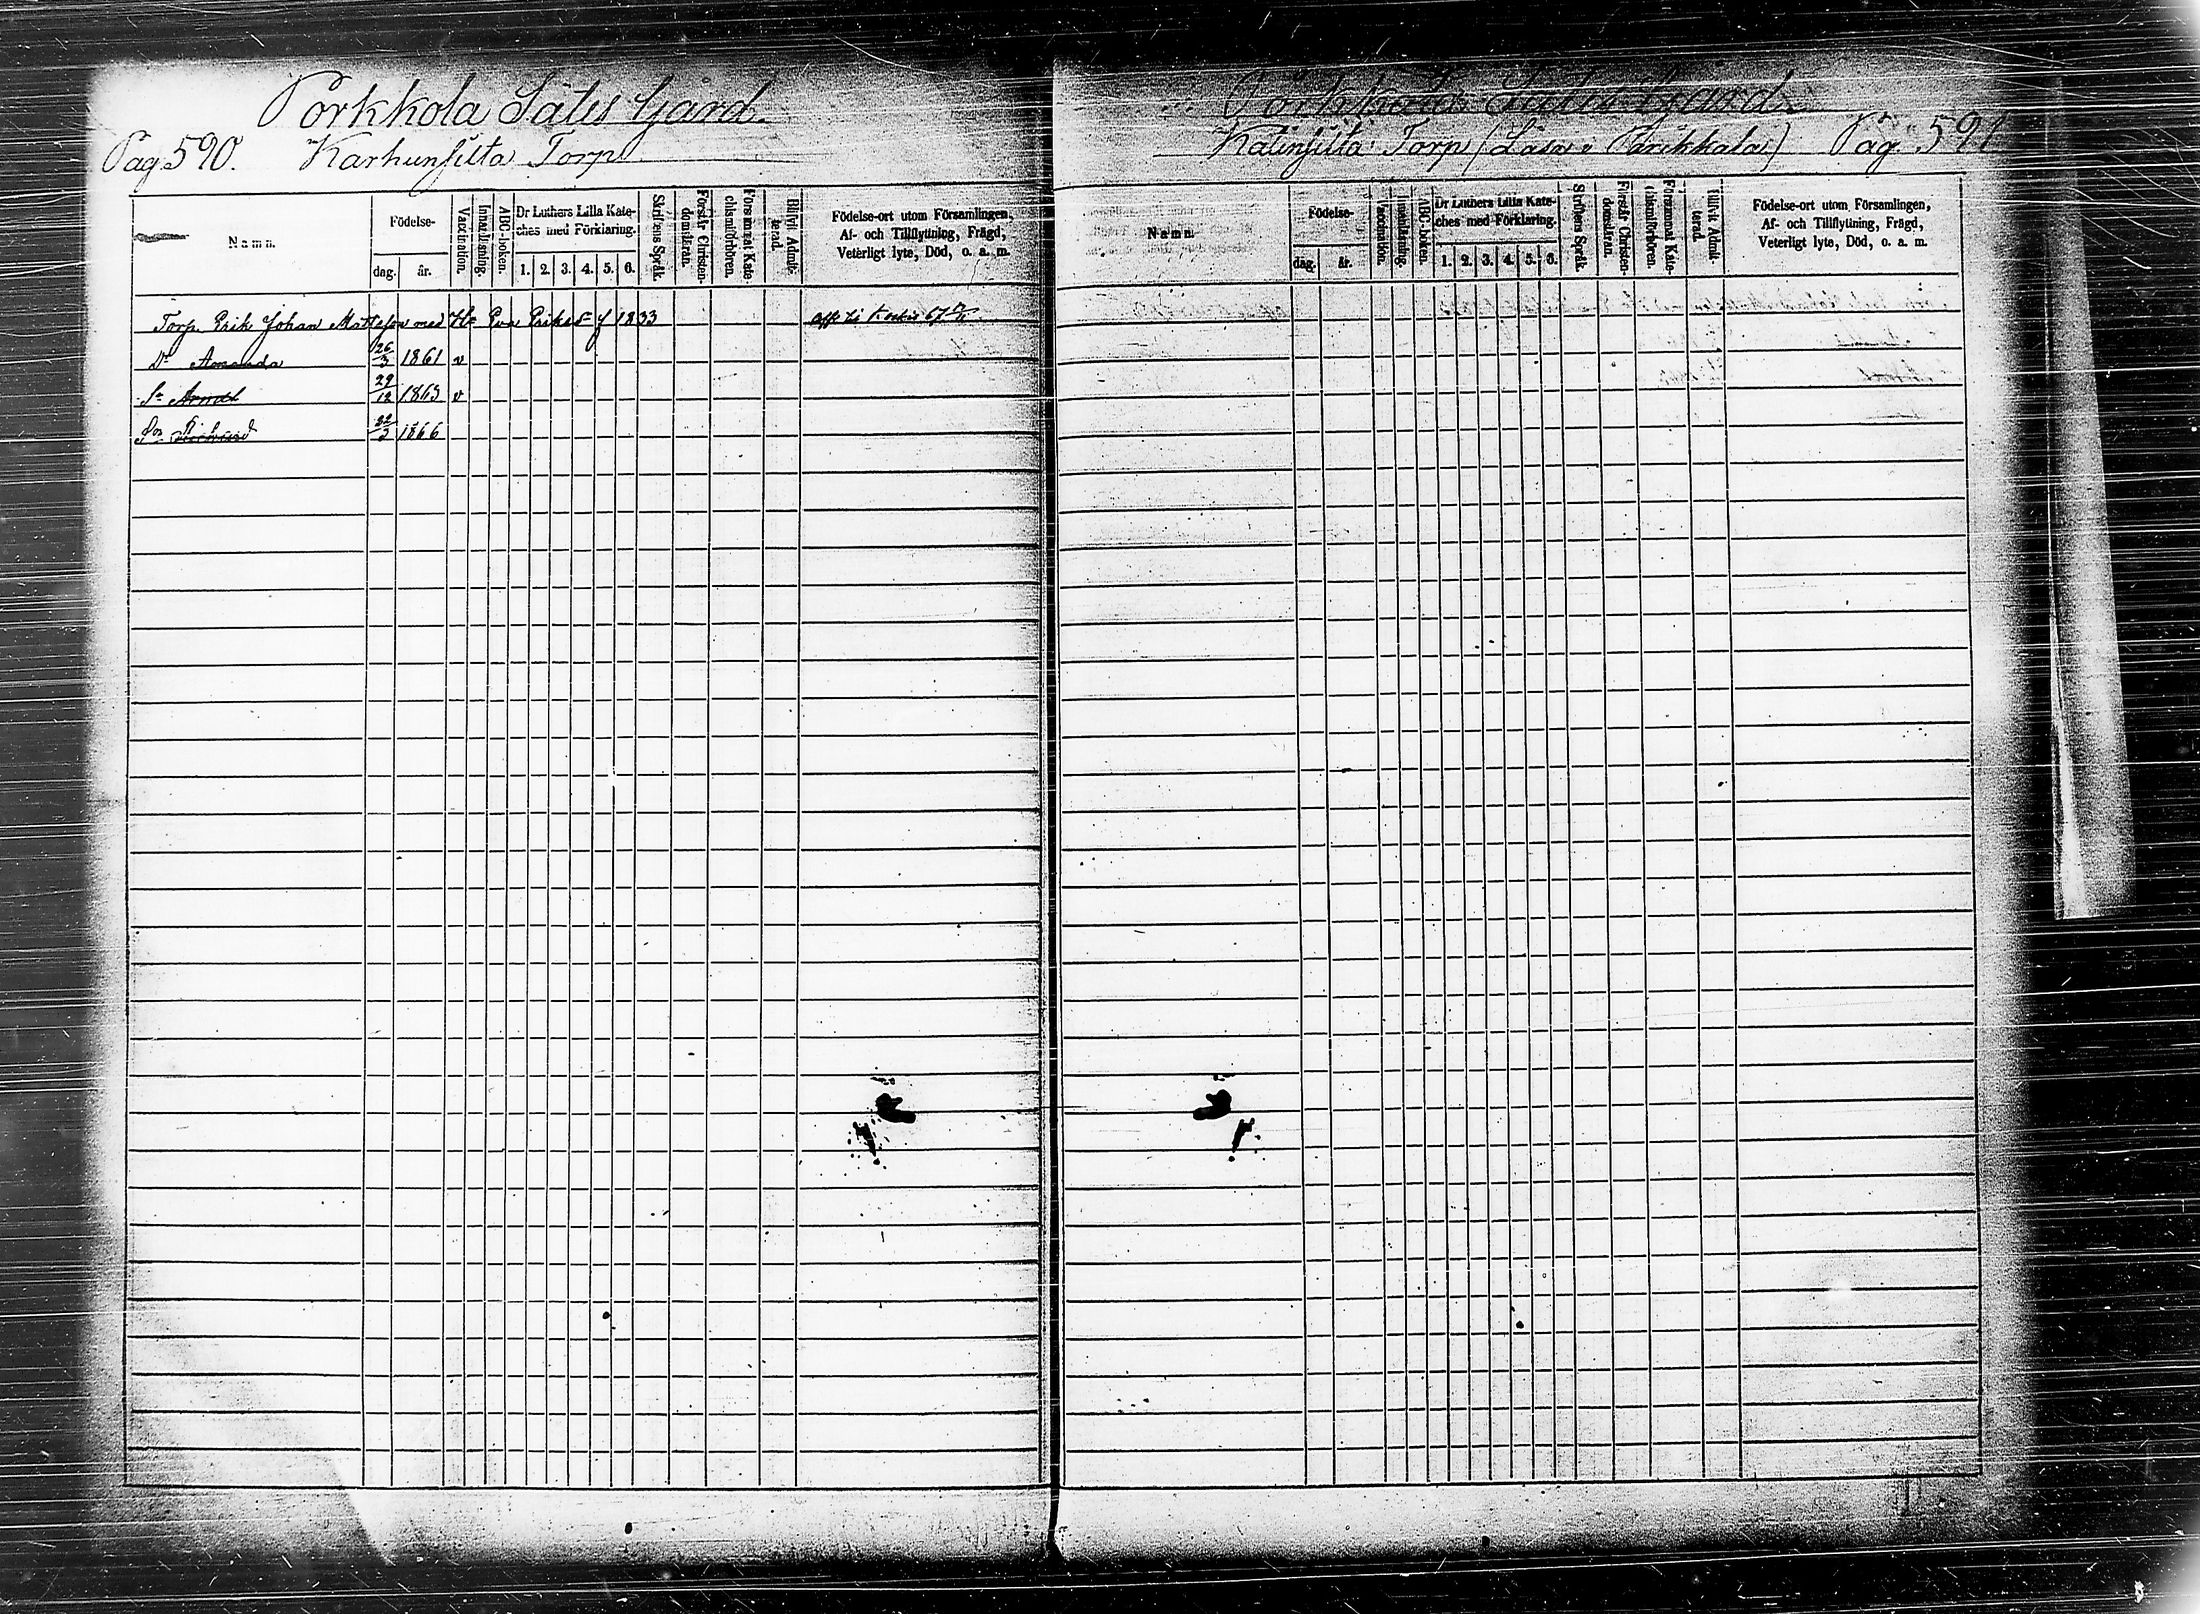 Porkkola Sätes Gård.
Pag 590. Karhunsilta Torp
Namn.
Födelse-
dag. år.
Vaccination.
Innanläsning.
ABC-boken.
Dr Luthers Lilla Kate-
ches med Förklaring.
1. 2. 3. 4. 5. 6.
Skriftens Språk.
Förstår Christen-
domsläran.
Försummat Kate-
chismiförhören.
Blifvit Admit-
terad.
Födelse-ort utom Församlingen,
Af- och Tillflyttning, Frägd,
Veterligt lyte, Död, o. a. m.
Torp. Erik Johan Mattsson med H= Eva Eriks f 1833 67
Dr Amanda 26/3 1861 v
Sn Arvid 29/12 1863 v
Son Richard 22/3 1866
Porkkola Sätes Gård.
Torp (Läsa i Parikkala) Pag 591
Namn.
Födelse-
dag. år.
Vaccination.
Innanläsning.
ABC-boken.
Dr Luthers Lilla Kate-
ches med Förklaring.
1. 2. 3. 4. 5. 6.
Skriftens Språk.
Förstår Christen-
domsläran.
Försummat Kate-
chismiförhören.
Blifvit Admit-
terad.
Födelse-ort utom Församlingen,
Af- och Tillflyttning, Frägd,
Veterligt lyte, Död, o. a. m.